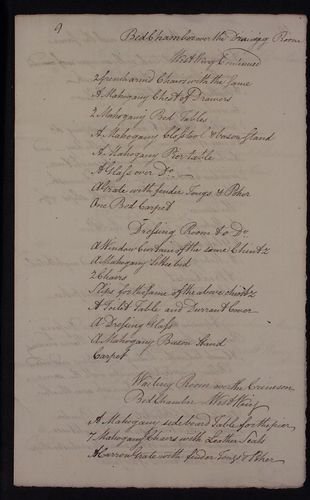 9
Bed Chamber over the Drawing Room
West Wing Continued
2 french armd Chairs with the same
A Mahogany Chest of Drawers
2 Mahogany Bed Tables
A Mahogany Closstool & bason Stand
A Mahogany Pier table
A Glass over Do.
A Grate with fender Tongs & Poker
One Bed Carpet
Dressing Room to Do.
A Window Curtain of the same Chintz
A Mahogany Settee bed
2 Chairs
Slips for the same of the above chintz
A Toilet Table and Durrant Cover
A Dressing Glass
A Mahogany Bason Stand
Carpet
Waiting Room over the Crimson
Bed Chamber West Wing
A Mahogany sideboard Table for the pier
7 Mahogany Chairs with Leather Seats
A Carron Grate with finder Tongs & Poker